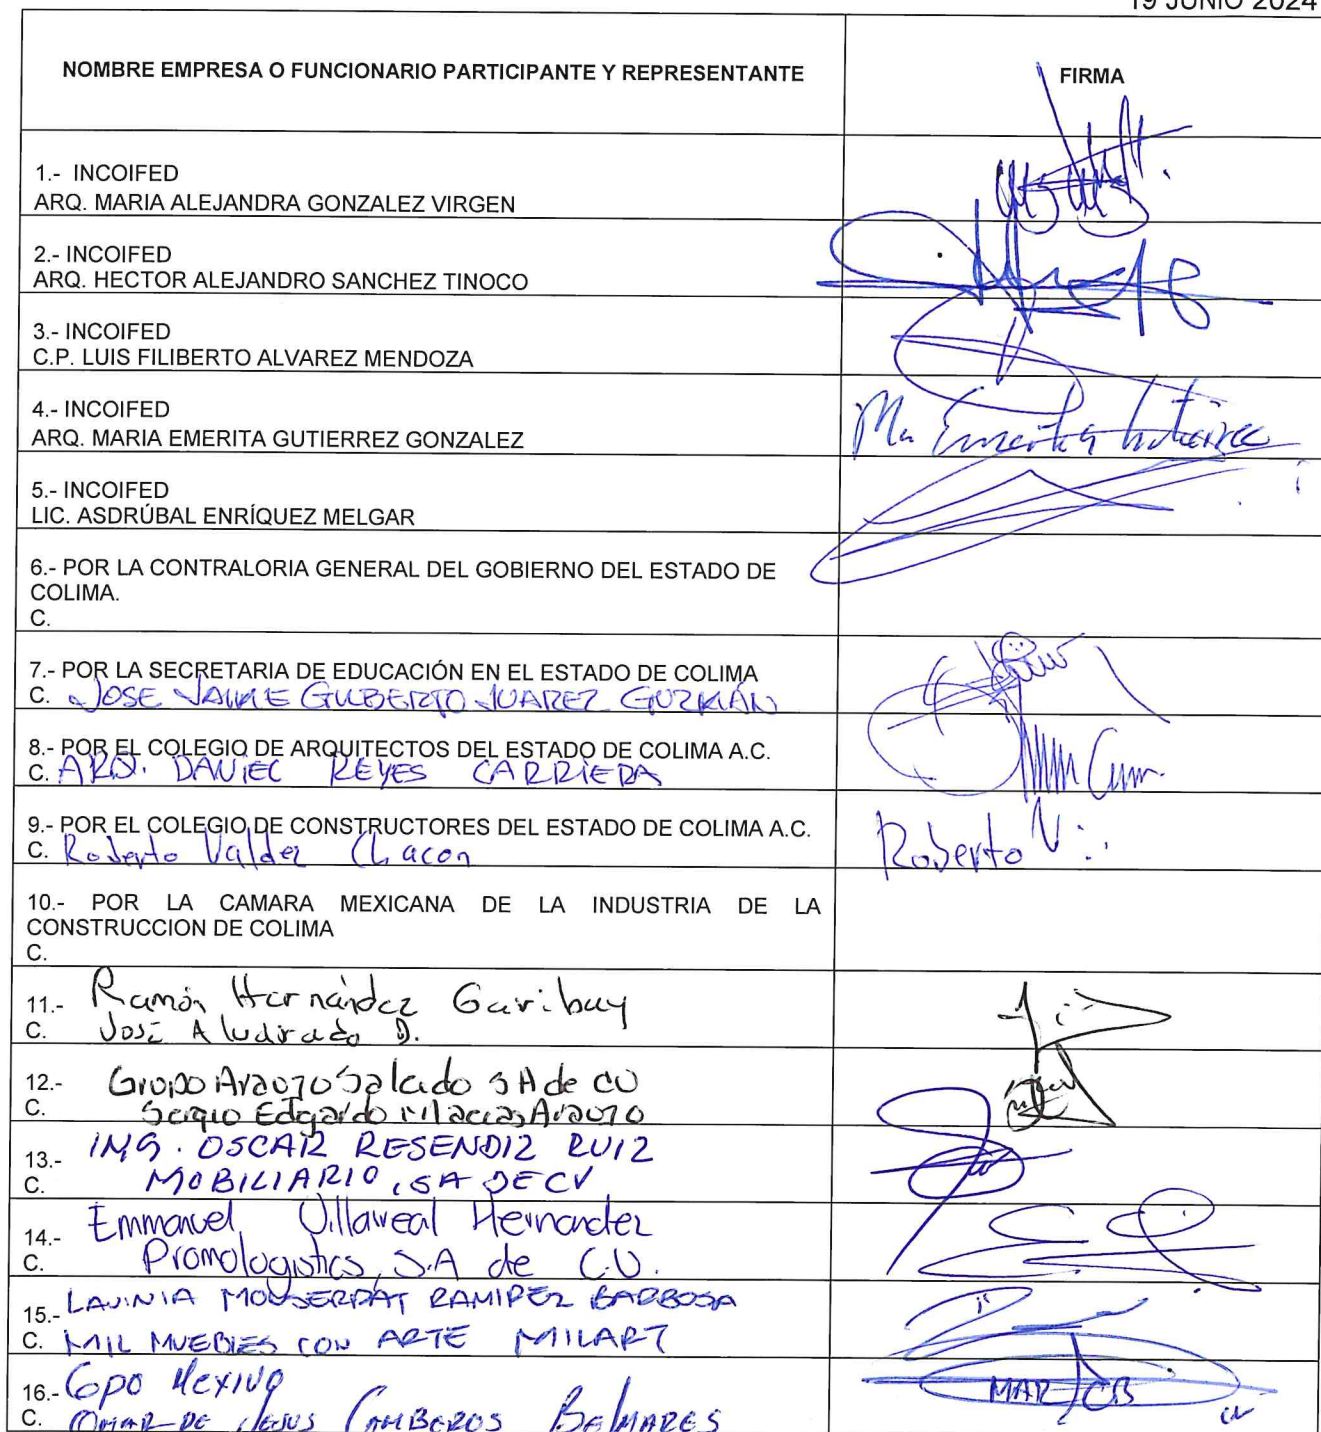 19 JUNIO 2024
NOMBRE EMPRESA O FUNCIONARIO PARTICIPANTE Y REPRESENTANTE
FIRMA
1.- INCOIFED
ARQ. MARIA ALEJANDRA GONZALEZ VIRGEN
2.- INCOIFED
ARQ. HECTOR ALEJANDRO SANCHEZ TINOCO
3.- INCOIFED
C.P. LUIS FILIBERTO ALVAREZ MENDOZA
4.- INCOIFED
ARQ. MARIA EMERITA GUTIERREZ GONZALEZ
Ma Emerita Gutierrez
5.- INCOIFED
LIC. ASDRÚBAL ENRÍQUEZ MELGAR
6.- POR LA CONTRALORIA GENERAL DEL GOBIERNO DEL ESTADO DE
COLIMA.
C.
7.- POR LA SECRETARIA DE EDUCACIÓN EN EL ESTADO DE COLIMA
C. JOSE JAIME GILBERTO JUAREZ GUZMÁN
8.- POR EL COLEGIO DE ARQUITECTOS DEL ESTADO DE COLIMA A.C.
C. ARQ. DANIEL REYES CARRIERA
9.- POR EL COLEGIO DE CONSTRUCTORES DEL ESTADO DE COLIMA A.C.
C. Roberto Valdez Chacon
Roberto V
10.- POR LA CAMARA MEXICANA DE LA INDUSTRIA DE LA
CONSTRUCCION DE COLIMA
C.
11.- Ramón Hernández Garibay
C. José Alvarado D.
12.- Grupo Araozo Salcido SA de CV
C. Sergio Edgardo Macias Araozo
13.- ING. OSCAR RESENDIZ RUIZ
C. MOBILIARIO, SA DE CV
14.- Emmanuel Villarreal Hernandez
C. Promologistics, S.A de C.V.
15.- LAVINIA MONSERRAT RAMIREZ BARBOSA
C. MIL MUEBLES CON ARTE MILART
16.- Gpo Mexivo
C. OMAR DE JESUS CAMBEROS BELMARES
MAR CB